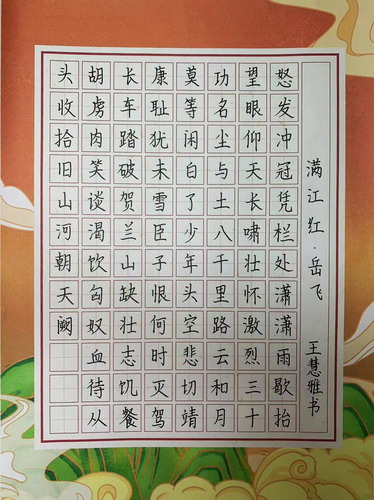 满江红·岳飞 王慧雅书
怒发冲冠凭栏处潇潇雨歇抬
望眼仰天长啸壮怀激烈三十
功名尘与土八千里路云和月
莫等闲白了少年头空悲切靖
康耻犹未雪臣子恨何时灭驾
长车踏破贺兰山缺壮志饥餐
胡虏肉笑谈渴饮匈奴血待从
头收拾旧山河朝天阙